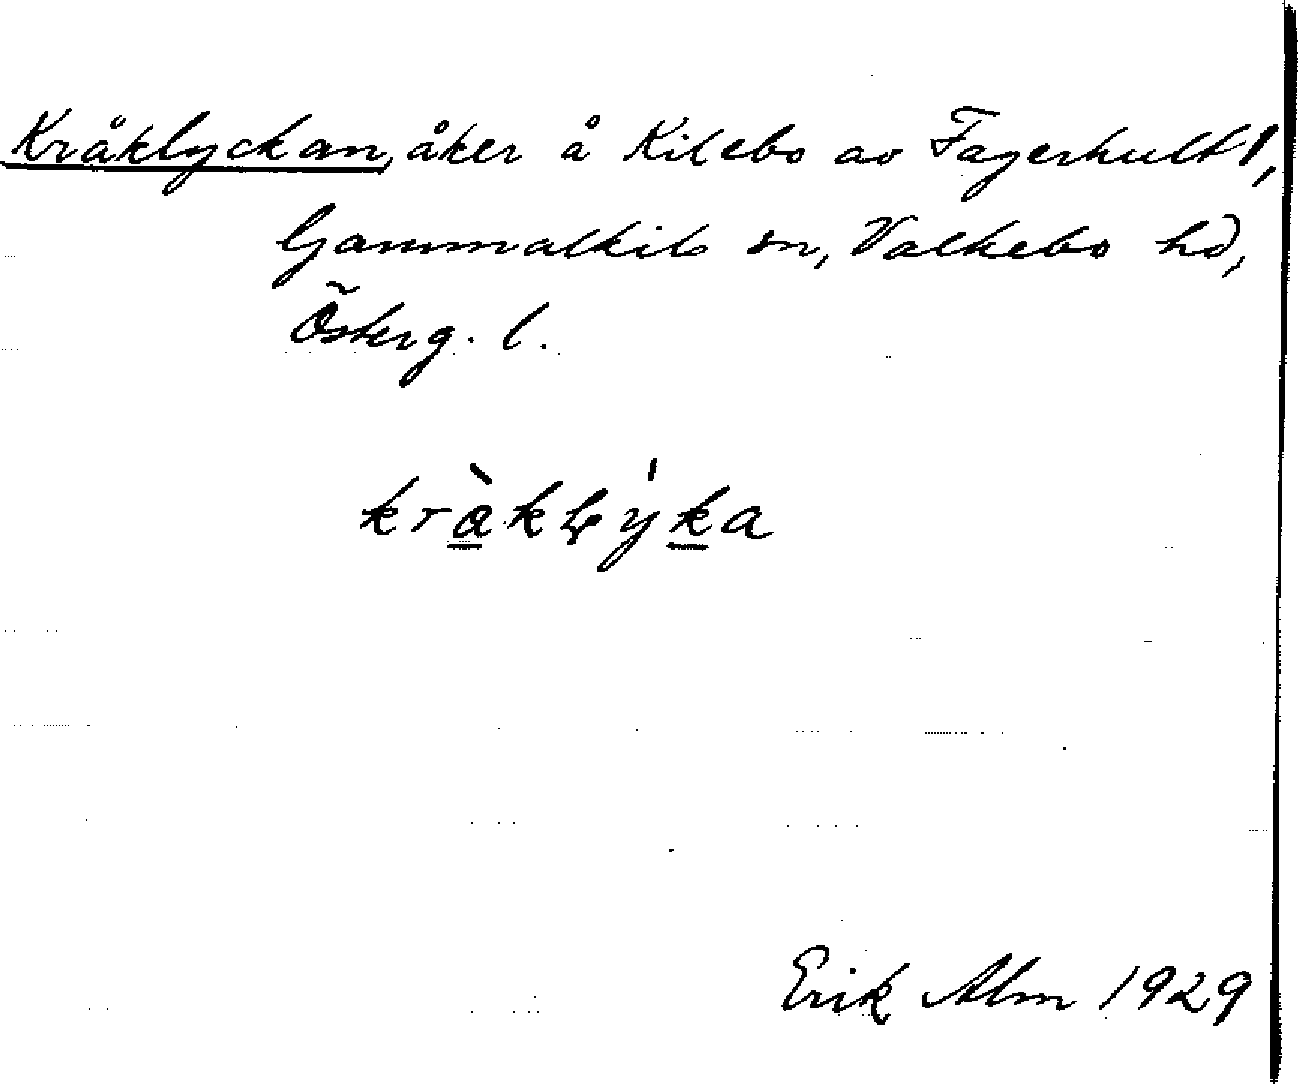 Kråklyckan, åker å Kilebo av Fagerhult 1,
Gammalkils sn, Valkebo hd,
Österg. l.
Erik Alm 1929